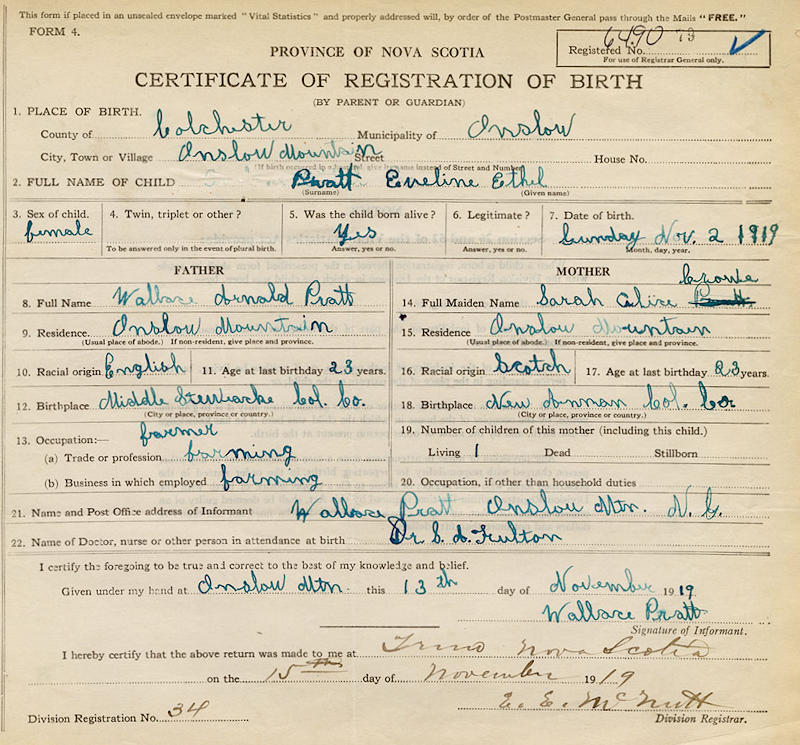 This form if placed in an unsealed envelope marked "Vital Statistics" and properly addressed will, by order of the Postmaster General pass through the Mails "FREE."
FORM 4.
6490 79
Registered No.
For use of Registrar General only.
PROVINCE OF NOVA SCOTIA
CERTIFICATE OF REGISTRATION OF BIRTH
(BY PARENT OR GUARDIAN)
1. PLACE OF BIRTH.
County of Colchester Municipality of Onslow
City, Town or Village Onslow Mountain Street House No.
(If birth occurred in a hospital, give its name instead of Street and Number)
2. FULL NAME OF CHILD Pratt Eveline Ethel
(Surname) (Given name)
3. Sex of child. 4. Twin, triplet or other? 5. Was the child born alive? 6. Legitimate? 7. Date of birth.
female Yes Sunday Nov. 2 1919
To be answered only in the event of plural birth. Answer, yes or no. Answer, yes or no. Month, day, year.
FATHER
8. Full Name Wallace Arnold Pratt
9. Residence. Onslow Mountain
(Usual place of abode.) If non-resident, give place and province.
10. Racial origin English 11. Age at last birthday 23 years.
12. Birthplace Middle Stewiacke Col. Co.
(City or place, province or country.)
13. Occupation:— farmer
(a) Trade or profession farming
(b) Business in which employed farming
MOTHER
Crowe
14. Full Maiden Name Sarah Alice Pratt
15. Residence Onslow Mountain
(Usual place of abode.) If non-resident, give place and province.
16. Racial origin Scotch 17. Age at last birthday 23 years.
18. Birthplace New Annan Col. Co
(City or place, province or country.)
19. Number of children of this mother (including this child.)
Living 1 Dead Stillborn
20. Occupation, if other than household duties
21. Name and Post Office address of Informant Wallace Pratt Onslow Mtn. N. S.
22. Name of Doctor, nurse or other person in attendance at birth Dr S. A. Fulton
I certify the foregoing to be true and correct to the best of my knowledge and belief.
Given under my hand at Onslow Mtn. this 13th day of November 1919
Wallace Pratt
Signature of Informant.
I hereby certify that the above return was made to me at Truro Nova Scotia
on the 15th day of November 1919
E. E. McNutt
Division Registration No. 34 Division Registrar.